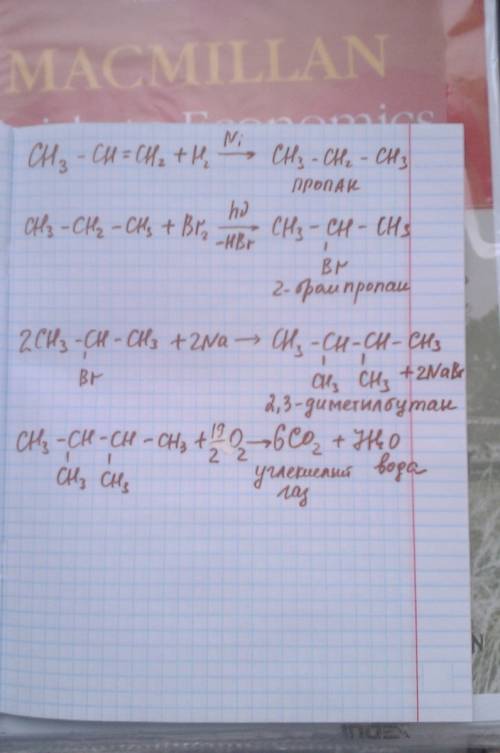 MACMILLAN
Economics
CH₃ – CH = CH₂ + H₂ —Ni→ CH₃ – CH₂ – CH₃
пропан
CH₃ – CH₂ – CH₃ + Br₂ —hν/–HBr→ CH₃ – CH – CH₃
Br
2-бромпропан
2CH₃ – CH – CH₃ + 2Na → CH₃ – CH – CH – CH₃
Br CH₃ CH₃ + 2NaBr
2,3-диметилбутан
CH₃ – CH – CH – CH₃ + 19/2 O₂ → 6CO₂ + 7H₂O
CH₃ CH₃ углекислый вода
газ
INDEX